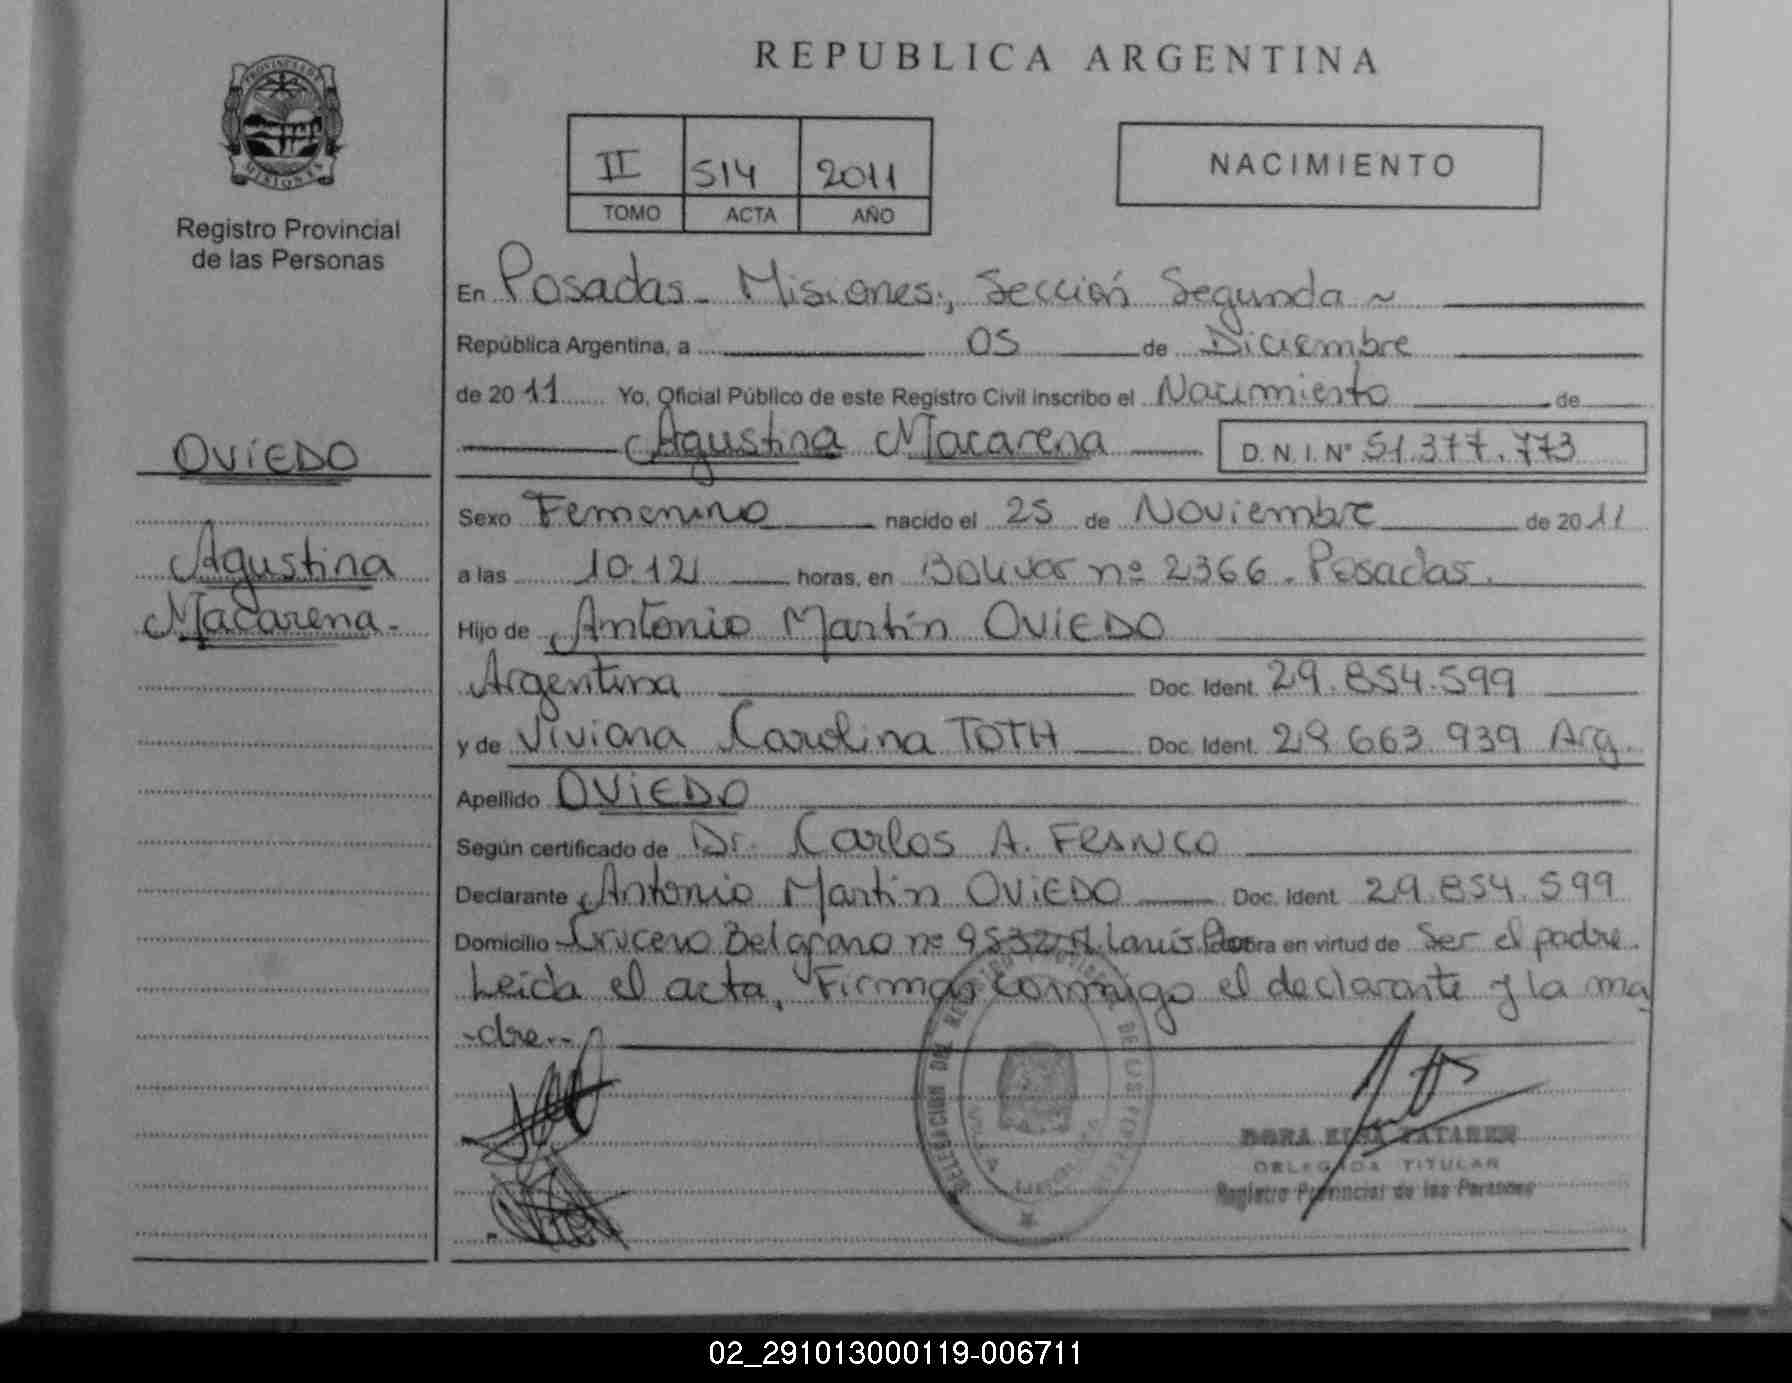 REPUBLICA ARGENTINA
PROVINCIA DE
MISIONES
Registro Provincial
de las Personas
II 514 2011
TOMO ACTA AÑO
NACIMIENTO
En Posadas - Misiones, Sección Segunda ~
República Argentina, a 05 de Diciembre
de 2011 Yo, Oficial Público de este Registro Civil inscribo el Nacimiento de
Agustina Macarena D. N. I. Nº 51.377.773
OVIEDO
Agustina
Macarena.-
Sexo Femenino nacido el 25 de Noviembre de 2011
a las 10.12 horas, en Bolivar nº 2366. Posadas.
Hijo de Antonio Martín OVIEDO
Argentina Doc. Ident. 29.854.599
y de Viviana Carolina TOTH Doc. Ident. 29.663.939 Arg.
Apellido OVIEDO
Según certificado de Dr. Carlos A. FRANCO
Declarante Antonio Martín OVIEDO Doc. Ident. 29.854.599
Domicilio Crucero Belgrano nº en virtud de Ser el padre.
Leida el acta, Firman conmigo el declarante y la ma
-dre.-
DELEGACION DEL
DELEGADA TITULAR
Registro Provincial de las Personas
02_291013000119-006711